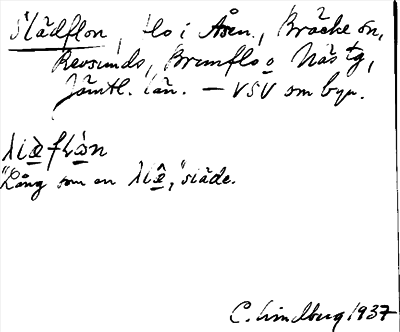 Slädflon, flo i Åsen., Bräcke sn,
Revsunds, Brunflo o Näs tg,
Jämtl. län. — VSV om byn.
"Lång som en släde.
C. Lindberg 1937